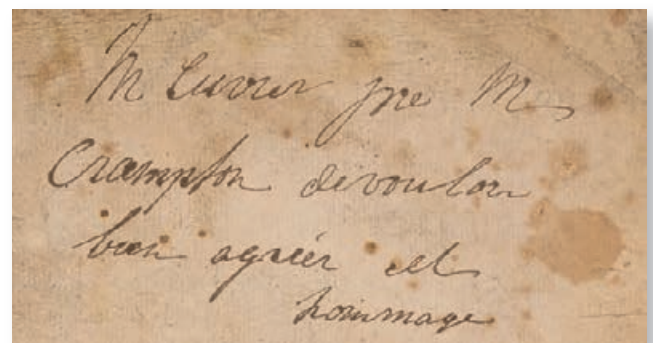 M Cuvier prie M
Crampton de vouloir
bien agréer cet
hommage